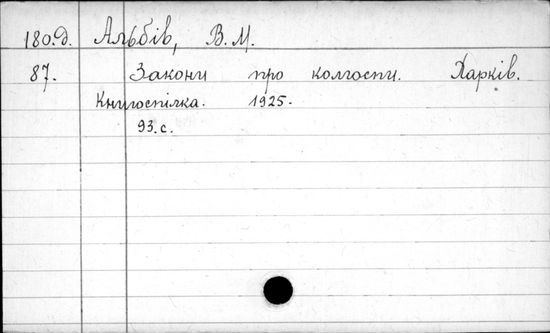 180.д. Альбів, В.М.
87. Закони про колгоспи. Харків.
Книгоспілка. 1925.
93.с.